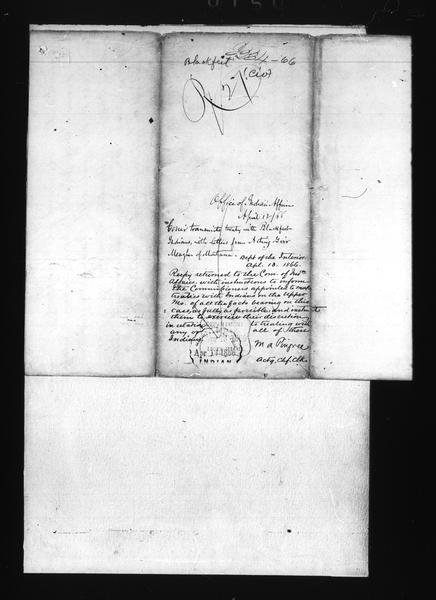 Blackfeet
-66
(Civ)
Office of Indian Affairs
April 12/66
Com'r transmits treaty with Blackfeet
Indians, with letters from Acting Gov'r
Meagher of Montana.
Dept of the Interior
Apl. 13. 1866.
Respy returned to the Com. of Ind.
Affairs, with instructions to inform
the Commissioners appointed to make
treaties with Indians on the Upper
Mo. of all the facts bearing on this
case, as fully as possible, and instruct
them to exercise their discretion
in relation to treating with
any or all of these
Indians.
Apr 1866
INDIAN
Actg. Chf. Clk.